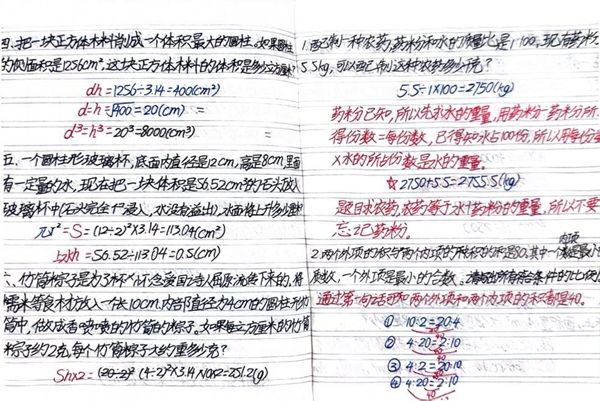 四、把一块正方体木料削成一个体积最大的圆柱。如果圆柱
的侧面积是1256cm²,这块正方体木料的体积是多少立方厘米?
dh=1256÷3.14=400(cm²)
d=h=√400=20(cm)
d³=h³=20³=8000(cm³)
五、一个圆柱形玻璃杯,底面内直径是12cm,高是8cm,里面
有一定量的水,现在把一块体积是56.52cm³的石头放入
玻璃杯中(石头完全浸入,水没有溢出),水面将上升多少厘米?
πr²=S=(12÷2)²×3.14=113.04(cm²)
上水h=56.52÷113.04=0.5(cm)
六、竹筒粽子是为了纪念爱国诗人屈原流传下来的,将
糯米等食材放入一个长10cm,内部直径为4cm的圆柱形竹
筒中,做成香喷喷的竹筒的粽子,如果每立方厘米的竹筒
粽子约2克,每个竹筒粽子大约重多少克?
Sh×2=(4÷2)²×3.14×10×2=251.2(g)
1.配制一种农药,药粉和水的质量比是1:100,现有药粉
5.5kg,可以配制这种农药多少千克?
5.5÷1×100=2750(kg)
药粉已知,所以先求水的重量,用药粉÷药粉所
得份数=每份数,已得知水占100份,所以用每份数
×水的所占份数是水的重量。
☆2750+5.5=2755.5(kg)
题目求农药,农药等于水+药粉的重量,所以不要
忘记药粉。
2.两个外项的积与两个内项的积的和是80,其中一个内项是最小的
质数,一个外项是最小的合数,请写出所有符合条件的比例
通过第一句话可知两个外项和两个内项的积都是40。
① 10:2=20:4
② 4:20=2:10
③ 4:2=20:10
④ 4:20=2:10